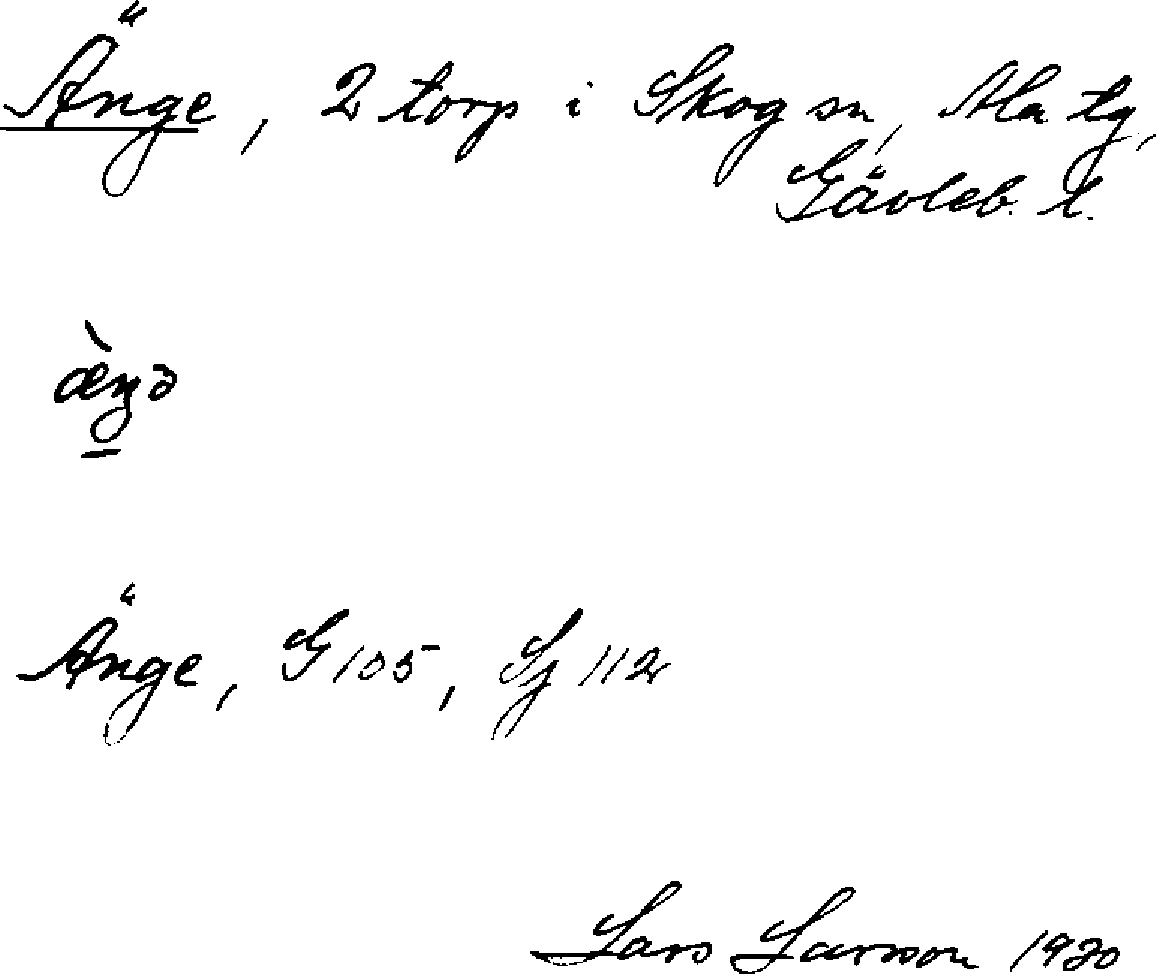 Änge, 2 torp i Skog sn, Ala tg,
Gävleb. l.
æ̀ŋə
Änge, G 105, Sj 112
Lars Larsson 1920